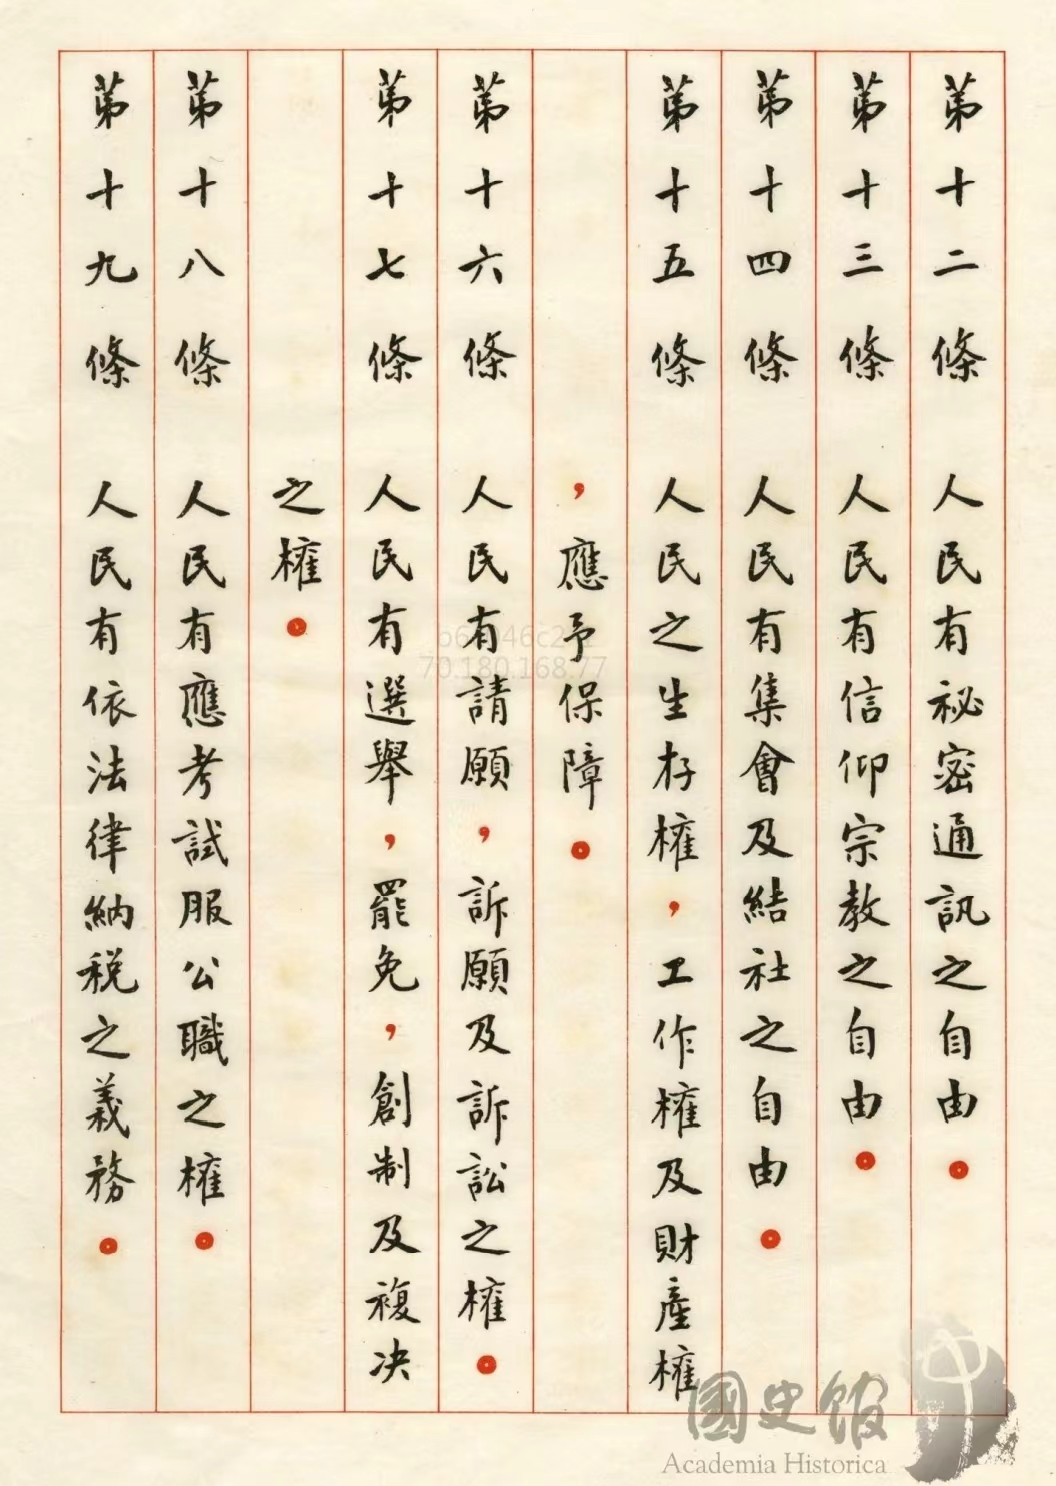 第十二條 人民有祕密通訊之自由。
第十三條 人民有信仰宗教之自由。
第十四條 人民有集會及結社之自由。
第十五條 人民之生存權，工作權及財產權
，應予保障。
第十六條 人民有請願，訴願及訴訟之權。
第十七條 人民有選舉，罷免，創制及複决
之權。
第十八條 人民有應考試服公職之權。
第十九條 人民有依法律納税之義務。
70.180.168.77
國史館
Academia Historica